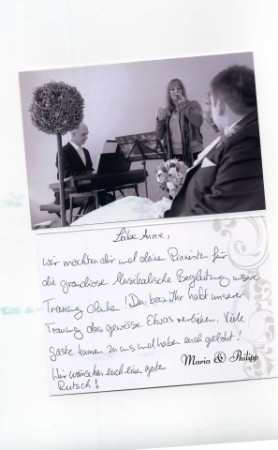 Liebe Anne,
wir möchten dir und deine Pianisten für
die grandiose Musikalische Begleitung unserer
Trauung danken! Du bzw. Ihr habt unserer
Trauung das gewisse Etwas verliehen. Viele
Gäste kamen zu uns und haben euch gelobt!
Wir wünschen euch einen guten
Rutsch!
Maria & Philipp